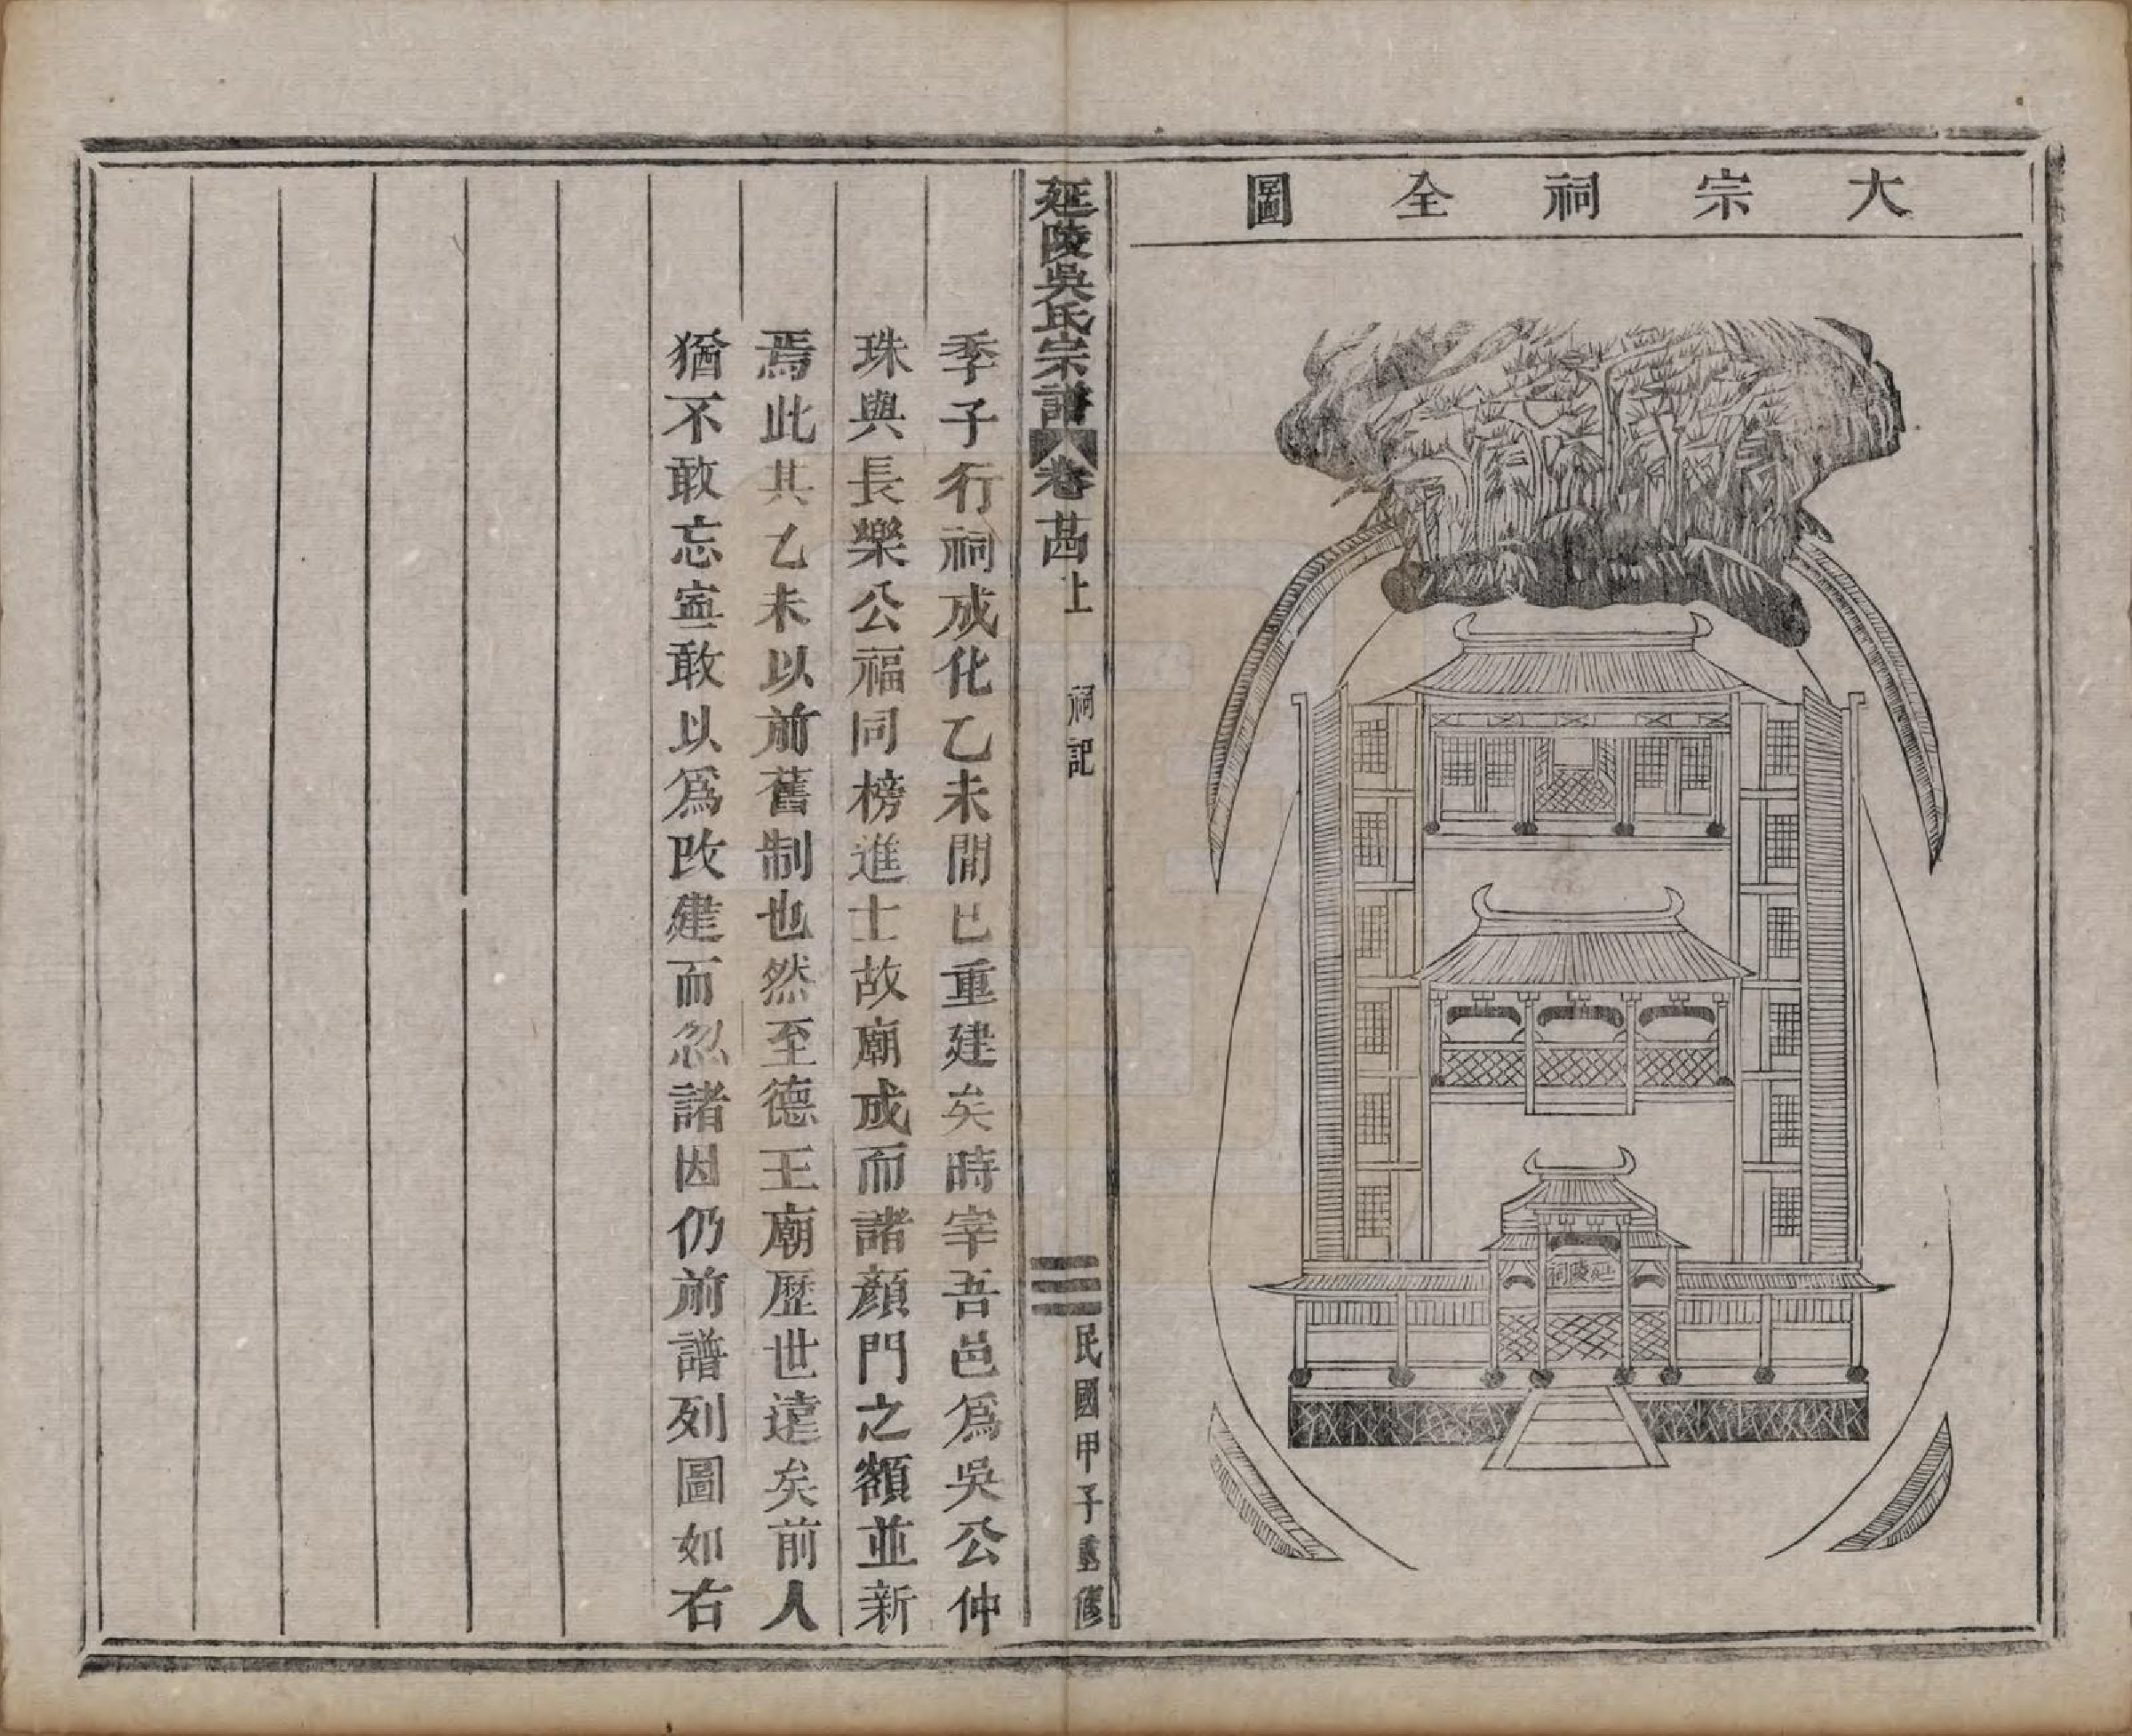 大宗祠全圖
延陵祠
延陵吳氏宗譜 卷苖上 祠記 三 民國甲子重修
季子行祠成化乙未間已重建矣時宰吾邑爲吳公仲
珠與長樂公福同榜進士故廟成而諸顏門之額並新
焉此其乙未以前舊制也然至德王廟歷世遠矣前人
猶不敢忘寍敢以爲改建而忽諸因仍前譜列圖如右